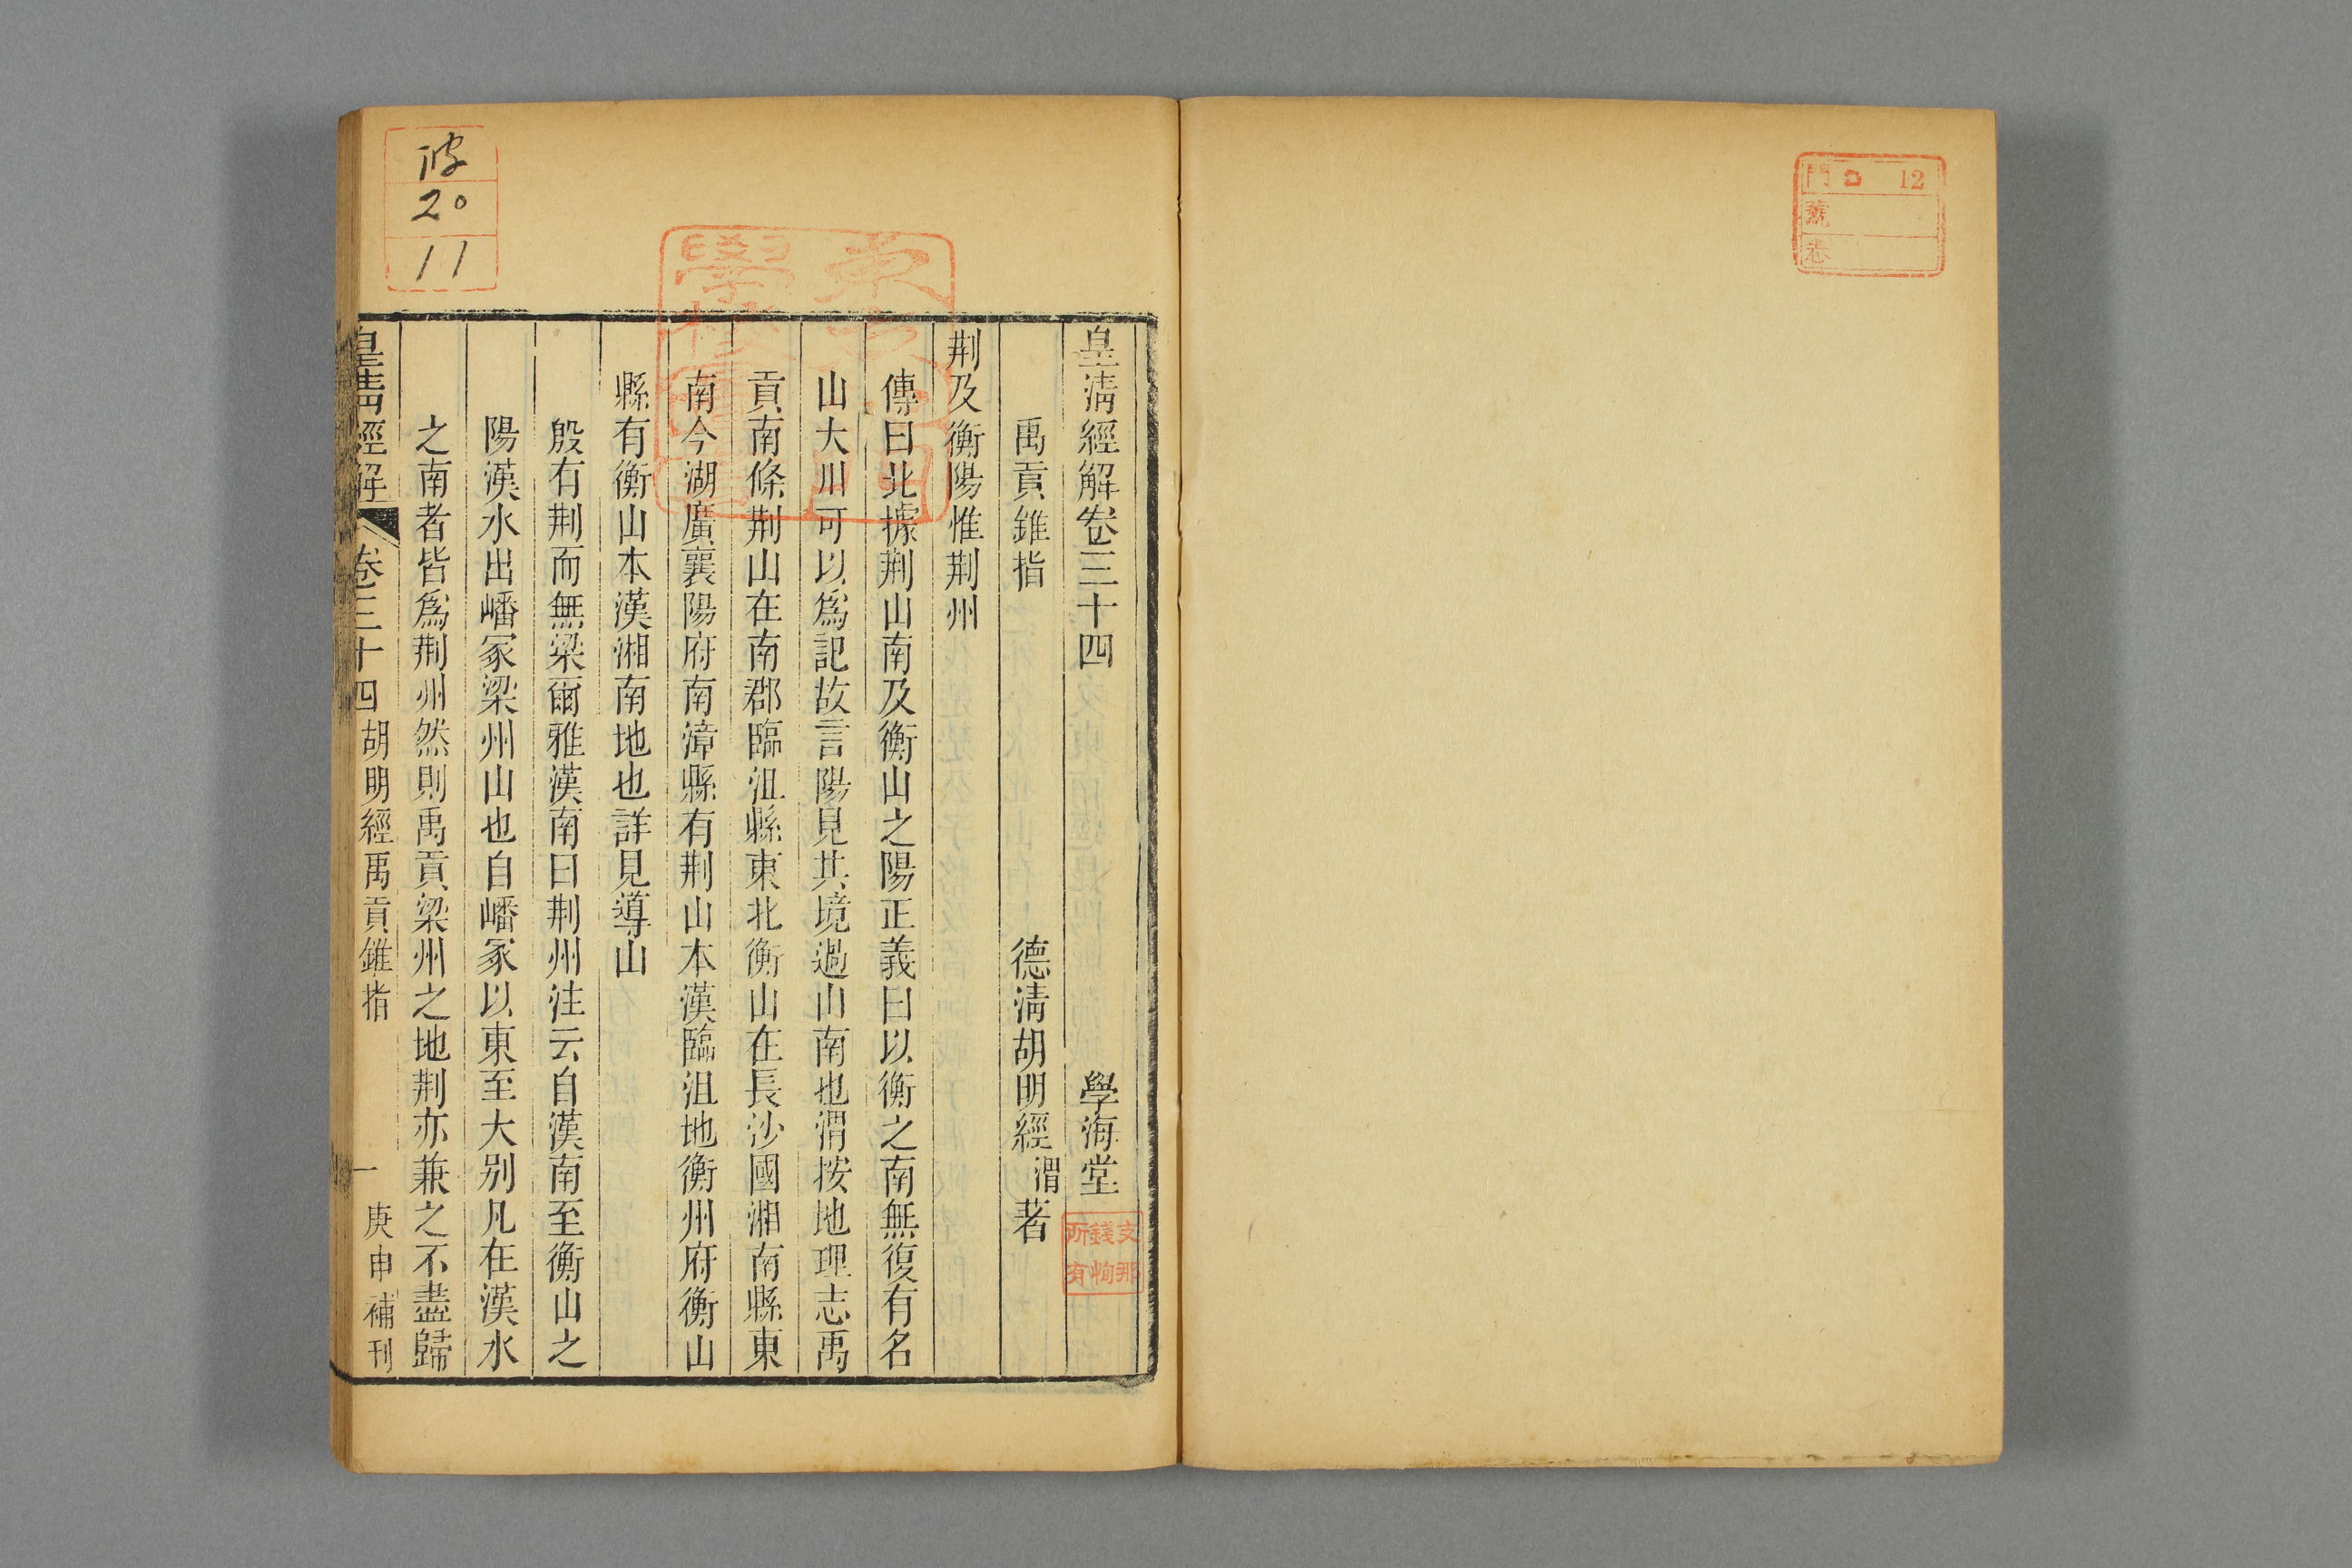 門 12
號
卷
皇淸經解卷三十四 學海堂
禹貢錐指 德淸胡明經渭著
荆及衡陽惟荆州
傳曰北據荆山南及衡山之陽正義曰以衡之南無復有名
山大川可以爲記故言陽見其境過山南也渭按地理志禹
貢南條荆山在南郡臨沮縣東北衡山在長沙國湘南縣東
南今湖廣襄陽府南漳縣有荆山本漢臨沮地衡州府衡山
縣有衡山本漢湘南地也詳見導山
殷有荆而無梁爾雅漢南曰荆州注云自漢南至衡山之
陽漢水出嶓冢梁州山也自嶓冢以東至大別凡在漢水
之南者皆爲荆州然則禹貢梁州之地荆亦兼之不盡歸
皇淸經解 卷三十四 胡明經禹貢錐指 一 庚申補刊
支那
錢恂
所有
20
11